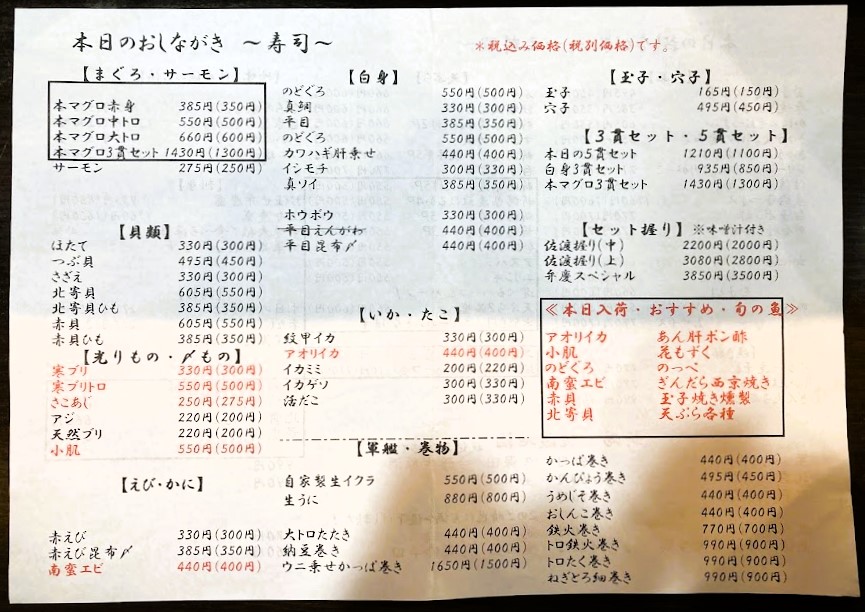 本日のおしながき ～寿司～
＊税込み価格(税別価格)です。
【まぐろ・サーモン】
本マグロ赤身 385円(350円)
本マグロ中トロ 550円(500円)
本マグロ大トロ 660円(600円)
本マグロ3貫セット 1430円(1300円)
サーモン 275円(250円)
【貝類】
ほたて 330円(300円)
つぶ貝 495円(450円)
さざえ 330円(300円)
北寄貝 605円(550円)
北寄貝ひも 385円(350円)
赤貝 605円(550円)
赤貝ひも 385円(350円)
【光りもの・〆もの】
寒ブリ 330円(300円)
寒ブリトロ 550円(500円)
さこあじ 250円(275円)
アジ 220円(200円)
天然ブリ 220円(200円)
小肌 550円(500円)
【えび・かに】
赤えび 330円(300円)
赤えび昆布〆 385円(350円)
南蛮エビ 440円(400円)
【白身】
のどぐろ 550円(500円)
真鯛 330円(300円)
平目 385円(350円)
のどぐろ 550円(500円)
カワハギ肝乗せ 440円(400円)
イシモチ 300円(330円)
真ソイ 385円(350円)
ホウボウ 330円(300円)
平目えんがわ 440円(400円)
平目昆布〆 440円(400円)
【いか・たこ】
紋甲イカ 330円(300円)
アオリイカ 440円(400円)
イカミミ 200円(220円)
イカゲソ 300円(330円)
活だこ 300円(330円)
【軍艦・巻物】
自家製生イクラ 550円(500円)
生うに 880円(800円)
大トロたたき 440円(400円)
納豆巻き 440円(400円)
ウニ乗せかっぱ巻き 1650円(1500円)
【玉子・穴子】
玉子 165円(150円)
穴子 495円(450円)
【3貫セット・5貫セット】
本日の5貫セット 1210円(1100円)
白身3貫セット 935円(850円)
本マグロ3貫セット 1430円(1300円)
【セット握り】※味噌汁付き
佐渡握り(中) 2200円(2000円)
佐渡握り(上) 3080円(2800円)
弁慶スペシャル 3850円(3500円)
≪本日入荷・おすすめ・旬の魚≫
アオリイカ あん肝ポン酢
小肌 花もずく
のどぐろ のっぺ
南蛮エビ ぎんだら西京焼き
赤貝 玉子焼き燻製
北寄貝 天ぷら各種
かっぱ巻き 440円(400円)
かんぴょう巻き 495円(450円)
うめじそ巻き 440円(400円)
おしんこ巻き 440円(400円)
鉄火巻き 770円(700円)
トロ鉄火巻き 990円(900円)
トロたく巻き 990円(900円)
ねぎとろ細巻き 990円(900円)